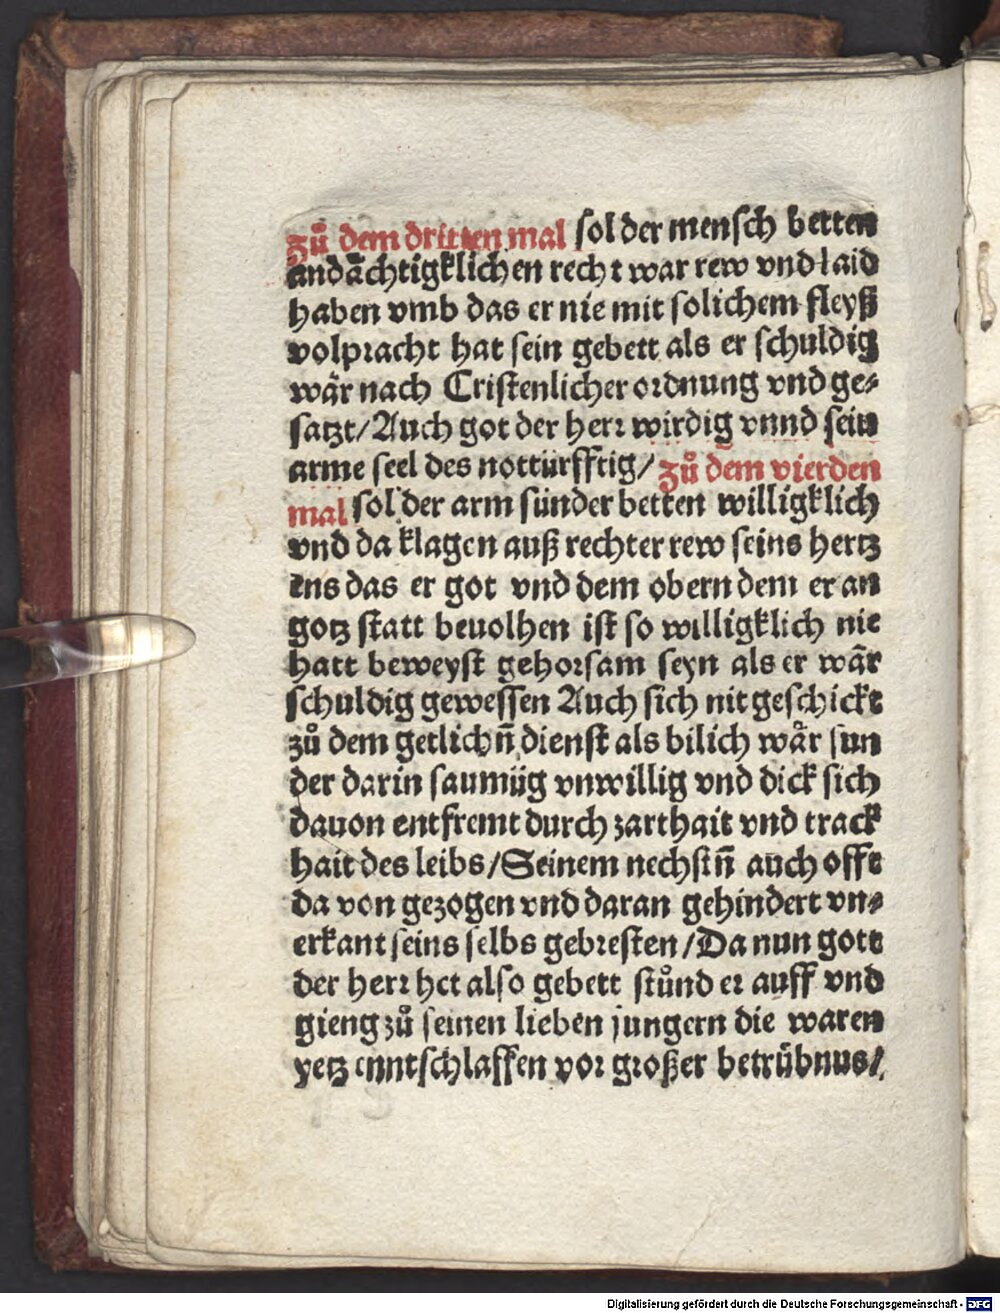 zů dem dritten mal sol der mensch betten
andächtigklichen recht war rew vnd laid
haben vmb das er nie mit solichem fleyß
volpracht hat sein gebett als er schuldig
wär nach Cristenlicher ordnung vnd ge⸗
satzt/ Auch got der herr wirdig vnnd sein
arme seel des notturfftig/ zů dem vierden
mal sol der arm sünder betten willigklich
vnd da klagen auß rechter rew seins hertz
ens das er got vnd dem obern dem er an
gotz statt beuolhen ist so willigklich nie
hatt beweyst gehorsam seyn als er wär
schuldig gewessen Auch sich nit geschickt
zů dem getlichn̄ dienst als bilich wär sun
der darin saumüg vnwillig vnd dick sich
dauon entfremt durch zarthait vnd track
hait des leibs/ Seinem nechstn̄ auch offt
da von gezogen vnd daran gehindert vn⸗
erkant seins selbs gebresten/ Da nun gott
der herr het also gebett stůnd er auff vnd
gieng zů seinen lieben jungern die waren
yetz enntschlaffen vor großer betrübnus/
Digitalisierung gefördert durch die Deutsche Forschungsgemeinschaft - DFG